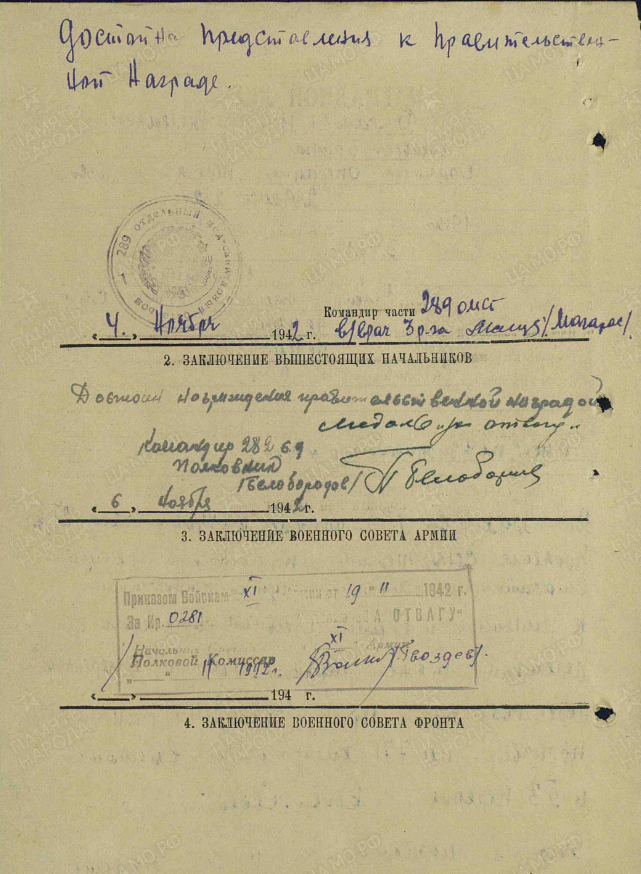 Достойна представления к Правительствен-
ной Награде.
289 ОТДЕЛЬНЫЙ МЕДСАНИТ
Командир части 289 омсб
«4.» Ноября 1942 г. в/врач 3 р-га
2. ЗАКЛЮЧЕНИЕ ВЫШЕСТОЯЩИХ НАЧАЛЬНИКОВ
Достоин награждения правительственной наградой
медалью „за отвагу"
Командир 282 сд
Полковник
/Белобородов/
«6» Ноября 1942 г.
3. ЗАКЛЮЧЕНИЕ ВОЕННОГО СОВЕТА АРМИИ
Приказом Войскам XI Армии от 19 11 1942 г.
За Нр. 0281 „ЗА ОТВАГУ"
Начальник XI Армии
Полковой Комиссар /Гвоздев/.
" " 11 1942 г.
« » 194 г.
4. ЗАКЛЮЧЕНИЕ ВОЕННОГО СОВЕТА ФРОНТА